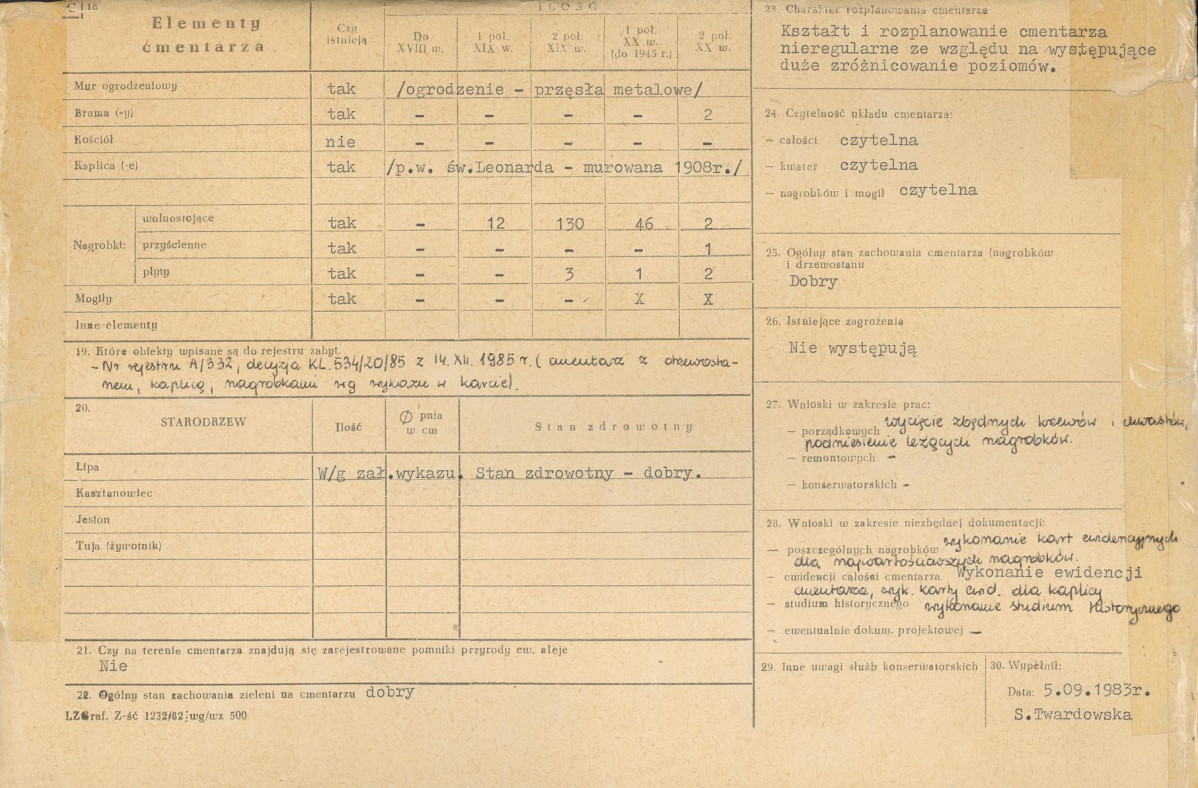 18
Elementy
cmentarza
Czy
istnieją
ILOŚĆ
Do
XVIII w.
1 poł.
XIX w.
2 poł.
XIX w.
1 poł.
XX w.
(do 1945 r.)
2 poł.
XX w.
Mur ogrodzeniowy tak /ogrodzenie – przęsła metalowe/
Brama (-y) tak – – – – 2
Kościół nie – – – – –
Kaplica (-e) tak /p.w. św.Leonarda – murowana 1908r./
Nagrobki:
wolnostojące tak – 12 130 46 2
przyścienne tak – – – – 1
płyty tak – – 3 1 2
Mogiły tak – – – X X
Inne elementy
19. Które obiekty wpisane są do rejestru zabyt.
– Nr rejestru A/332, decyzja KL.534/20/85 z 14.XII.1985 r. (cmentarz z drzewosta-
nem, kaplicą, nagrobkami wg wykazu w karcie).
20.
STARODRZEW Ilość Ø pnia
w cm Stan zdrowotny
Lipa W/g zał.wykazu. Stan zdrowotny – dobry.
Kasztanowiec
Jesion
Tuja (żywotnik)
21. Czy na terenie cmentarza znajdują się zarejestrowane pomniki przyrody ew. aleje
Nie
22. Ogólny stan zachowania zieleni na cmentarzu dobry
LZGraf. Z-ść 1232/82 wg/wz 500
23. Charakter rozplanowania cmentarza
Kształt i rozplanowanie cmentarza
nieregularne ze względu na występujące
duże zróżnicowanie poziomów.
24. Czytelność układu cmentarza:
– całości czytelna
– kwater czytelna
– nagrobków i mogił czytelna
25. Ogólny stan zachowania cmentarza (nagrobków
i drzewostanu
Dobry
26. Istniejące zagrożenia
Nie występują
27. Wnioski w zakresie prac:
– porządkowych wycięcie zbędnych krzewów i chwastów,
podniesienie leżących nagrobków.
– remontowych –
– konserwatorskich –
28. Wnioski w zakresie niezbędnej dokumentacji:
– poszczególnych nagrobków wykonanie kart ewidencyjnych
dla najwartościowszych nagrobków.
– ewidencji całości cmentarza Wykonanie ewidencji
cmentarza, wyk. karty ewid. dla kaplicy
– studium historycznego wykonanie studium historycznego
– ewentualnie dokum. projektowej –
29. Inne uwagi służb konserwatorskich
30. Wypełnił:
Data: 5.09.1983r.
S.Twardowska